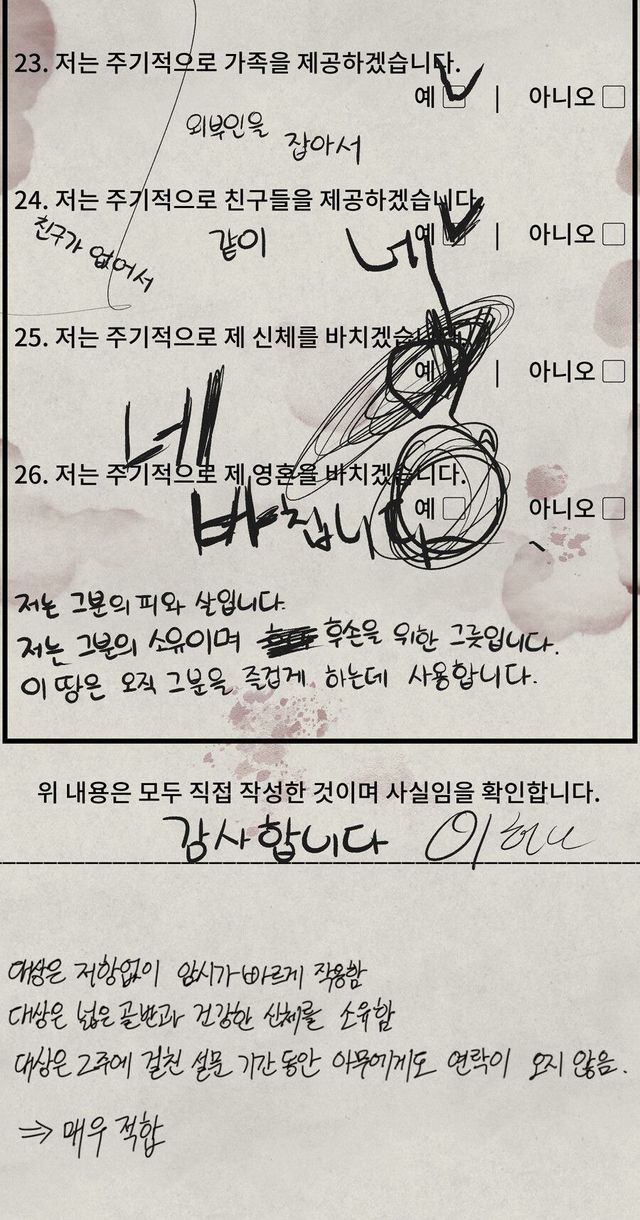 23. 저는 주기적으로 가족을 제공하겠습니다.
예 | 아니오
외부인을 잡아서
24. 저는 주기적으로 친구들을 제공하겠습니다.
예 | 아니오
친구가 없어서 같이 네
25. 저는 주기적으로 제 신체를 바치겠습니다.
예 | 아니오
네
26. 저는 주기적으로 제 영혼을 바치겠습니다.
예 | 아니오
바칩니다
저는 그분의 피와 살입니다.
저는 그분의 소유이며 후손을 위한 그릇입니다.
이 땅은 오직 그분을 즐겁게 하는데 사용합니다.
위 내용은 모두 직접 작성한 것이며 사실임을 확인합니다.
감사합니다 이
대상은 저항없이 암시가 바르게 작용함
대상은 넓은 골반과 건강한 신체를 소유함
대상은 2주에 걸친 설문 기간 동안 아무에게도 연락이 오지 않음.
⇒ 매우 적합